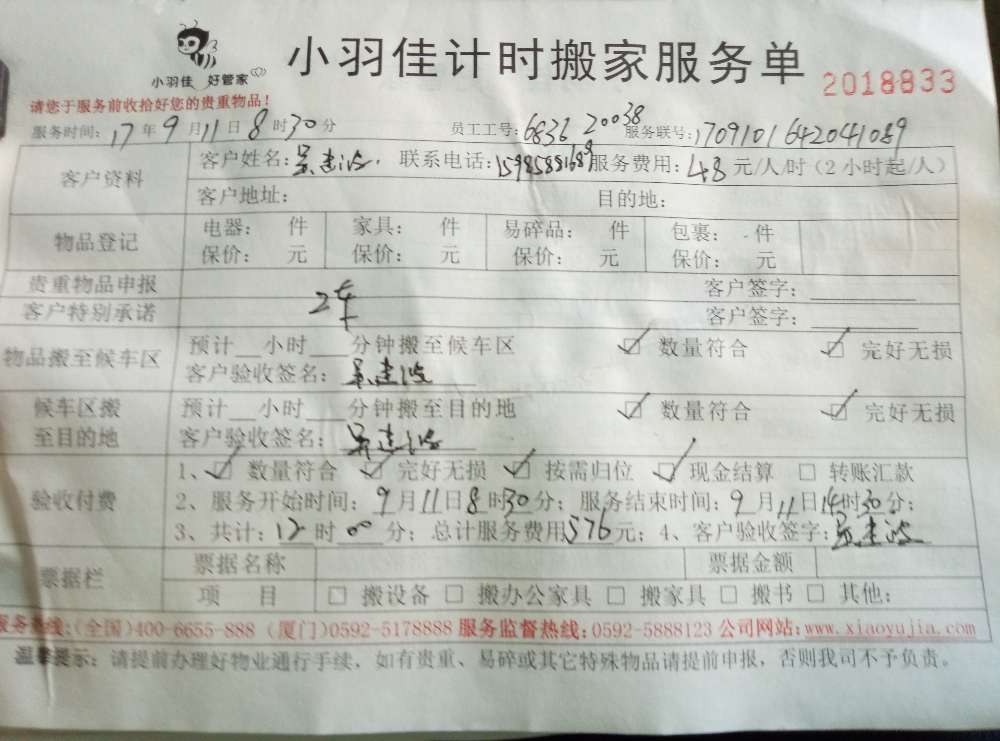 小羽佳 好管家
小羽佳计时搬家服务单
2018833
请您于服务前收拾好您的贵重物品！
服务时间：17年9月11日8时30分 员工工号：6836 20038 服务联号：1709101642041089
客户资料 客户姓名：吴建波，联系电话：15985881689 服务费用：48元/人/时（2小时起/人）
客户地址： 目的地：
物品登记 电器： 件 家具： 件 易碎品： 件 包裹： 件
保价： 元 保价： 元 保价： 元 保价： 元
贵重物品申报 客户签字：
2车
客户特别承诺 客户签字：
物品搬至候车区 预计__小时___分钟搬至候车区 ☑ 数量符合 ☑ 完好无损
客户验收签名：吴建波
候车区搬至目的地 预计__小时___分钟搬至目的地 ☑ 数量符合 ☑ 完好无损
客户验收签名：吴建波
验收付费 1、☑ 数量符合 ☑ 完好无损 ☑ 按需归位 ☑ 现金结算 □ 转账汇款
2、服务开始时间：9月11日8时30分；服务结束时间：9月11日14时30分；
3、共计：12时00分；总计服务费用576元；4、客户验收签字：吴建波
票据栏 票据名称 票据金额
项 目 □ 搬设备 □ 搬办公家具 □ 搬家具 □ 搬书 □ 其他：
服务热线：(全国)400-6655-888（厦门)0592-5178888 服务监督热线：0592-5888123 公司网站：www.xiaoyujia.com
温馨提示：请提前办理好物业通行手续，如有贵重、易碎或其它特殊物品请提前申报，否则我司不予负责。